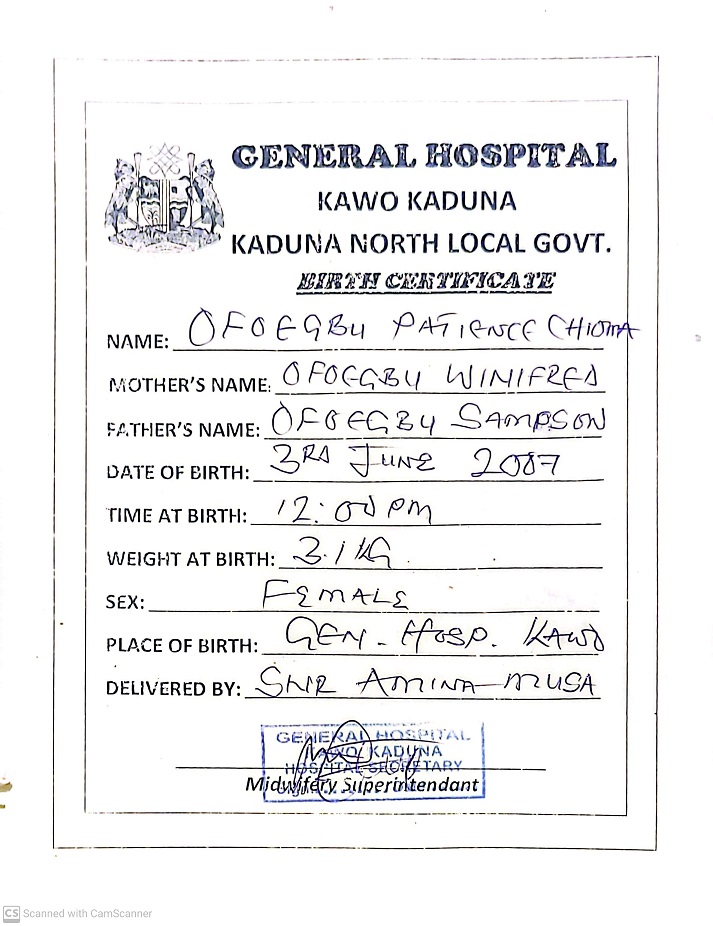 GENERAL HOSPITAL
KAWO KADUNA
KADUNA NORTH LOCAL GOVT.
BIRTH CERTIFICATE
NAME: OFOEGBU PATIENCE CHIOMA
MOTHER'S NAME: OFOEGBU WINIFRED
FATHER'S NAME: OFOEGBU SAMPSON
DATE OF BIRTH: 3RD JUNE 2007
TIME AT BIRTH: 12:00 PM
WEIGHT AT BIRTH: 3.1 KG
SEX: FEMALE
PLACE OF BIRTH: GEN. HOSP. KAWO
DELIVERED BY: SNR AMINA MUSA
GENERAL HOSPITAL
KAWO, KADUNA
HOSPITAL SECRETARY
Midwifery Superintendant
CS Scanned with CamScanner